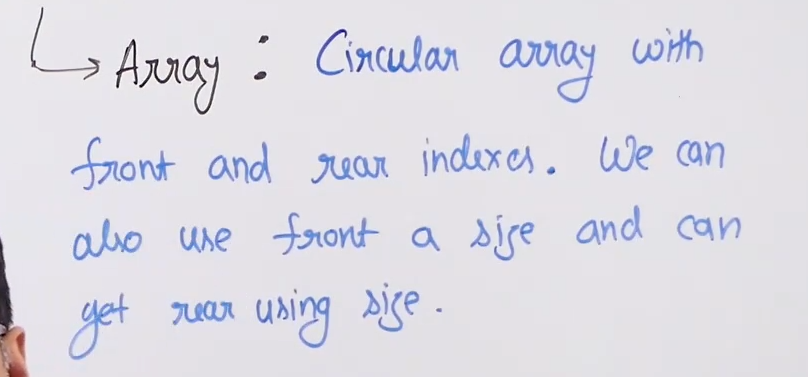 Array : Circular array with
front and rear indexes. We can
also use front a size and can
get rear using size.